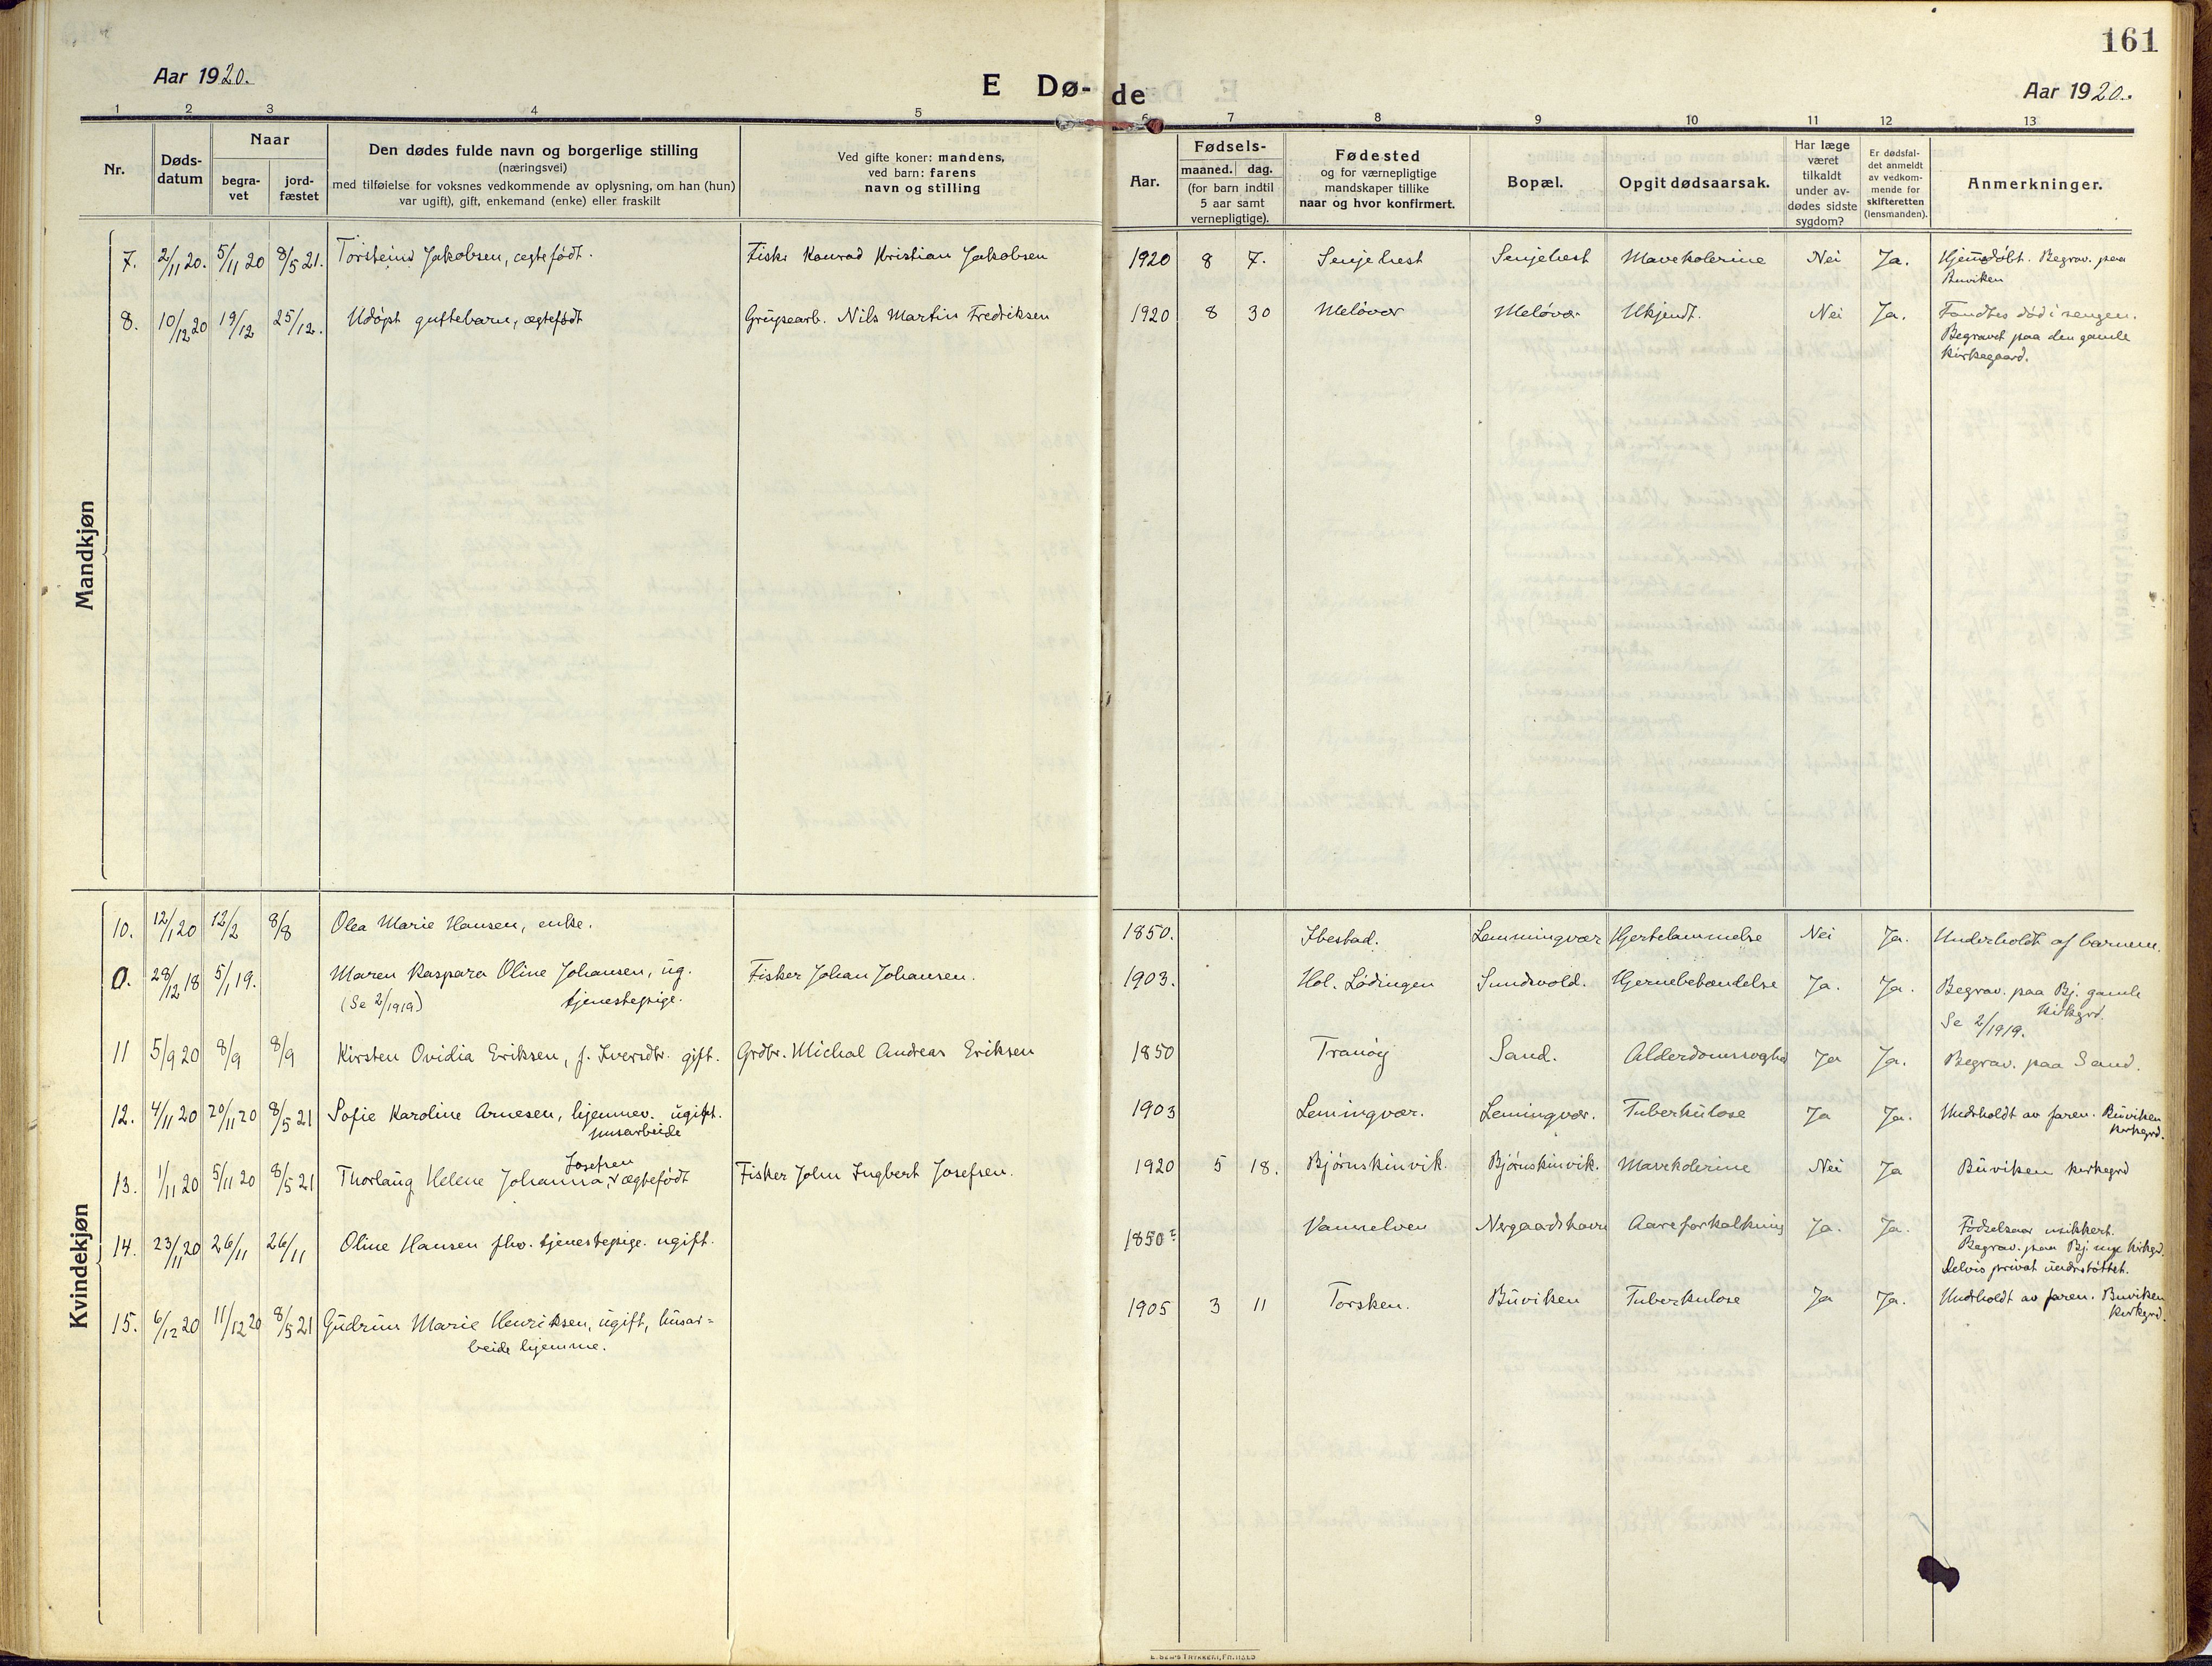 161
Aar 1920.
E Dø-
de
Aar 1920.
1 2 3 4 5 6 7 8 9 10 11 12 13
Nr.
Døds-
datum
Naar
begra-
vet
jord-
fæstet
Den dødes fulde navn og borgerlige stilling
(næringsvei)
med tilføielse for voksnes vedkommende av oplysning, om han (hun)
var ugift), gift, enkemand (enke) eller fraskilt
Ved gifte koner: mandens,
ved barn: farens
navn og stilling
Aar.
Fødsels-
maaned. dag.
(for barn indtil
5 aar samt
vernepligtige).
Fødested
og for værnepligtige
mandskaper tillike
naar og hvor konfirmert.
Bopæl.
Opgit dødsaarsak.
Har læge
været
tilkaldt
under av-
dødes sidste
sygdom?
Er dødsfal-
det anmeldt
av vedkom-
mende for
skifteretten
(lensmanden).
Anmerkninger.
Mandkjøn
7. 2/11 20. 5/11 20 8/5 21. Torstein Jakobsen, ægtefødt. Fisker Konrad Kristian Jakobsen 1920 8 7. Senjehest Senjehest Mavekolerine Nei Ja. Hjemdøbt. Begrav. paa
Buviken
8. 10/12 20 19/12 25/12. Udøpt guttebarn, ægtefødt Grupearb. Nils Martin Fredriksen 1920 8 30 Meløvær Meløvær Ukjendt. Nei Ja. Fandtes død i sengen.
Begravet paa den gamle
kirkegaard.
Kvindekjøn
10. 12/1 20 12/2 8/8 Olea Marie Hansen, enke. 1850. Ibestad. Lemmingvær Hjertelammelse Nei Ja. Underholdt af barnene.
0. 28/12 18 5/1 19. Maren Kaspara Oline Johansen, ug. Fisker Johan Johansen. 1903. Hol. Lödingen Sundsvold. Hjernebetændelse Ja. Ja. Begrav. paa Bj. gamle
(Se 2/1919) tjenestepige. kirkgrd.
Se 2/1919.
11 5/9 20 8/9 8/9 Kirsten Ovidia Eriksen, f. Iversdtr. gift. Grdbr. Michal Andreas Eriksen 1850 Tranøy Sand. Alderdomssvaghed Ja Ja. Begrav. paa Sand.
12. 4/11 20 20/11 20 8/5 21 Sofie Karoline Arnesen, hjemmev. ugift. 1903 Lemingvær. Lemingvær. Tuberkulose Ja Ja. Undrholdt av faren. Buviken
husarbeide kirkgrd.
13. 1/11 20 5/11 20 8/5 21 Thorlaug Helene Johanna Josefsen, ægtefødt Fisker John Ingbert Josefsen. 1920 5 18. Bjørnskinvik. Bjørnskinvik. Mavekolerine Nei Ja Buviken kirkegrd
14. 23/11 20 26/11 26/11 Oline Hansen fhv. tjenestepige. ugift. 1850? Vanselven Nergaardshavn Aareforkalkning Ja. Ja. Fødselsaar usikkert.
Begrav. paa Bj. nye kirkgd.
Delvis privat understöttet.
15. 6/12 20 11/12 20 8/5 21 Gudrun Marie Henriksen, ugift, husar=
beide hjemme. 1905 3 11 Torsken. Buviken Tuberkulose Ja Ja. Undrholdt av faren. Buviken
kirkgrd.